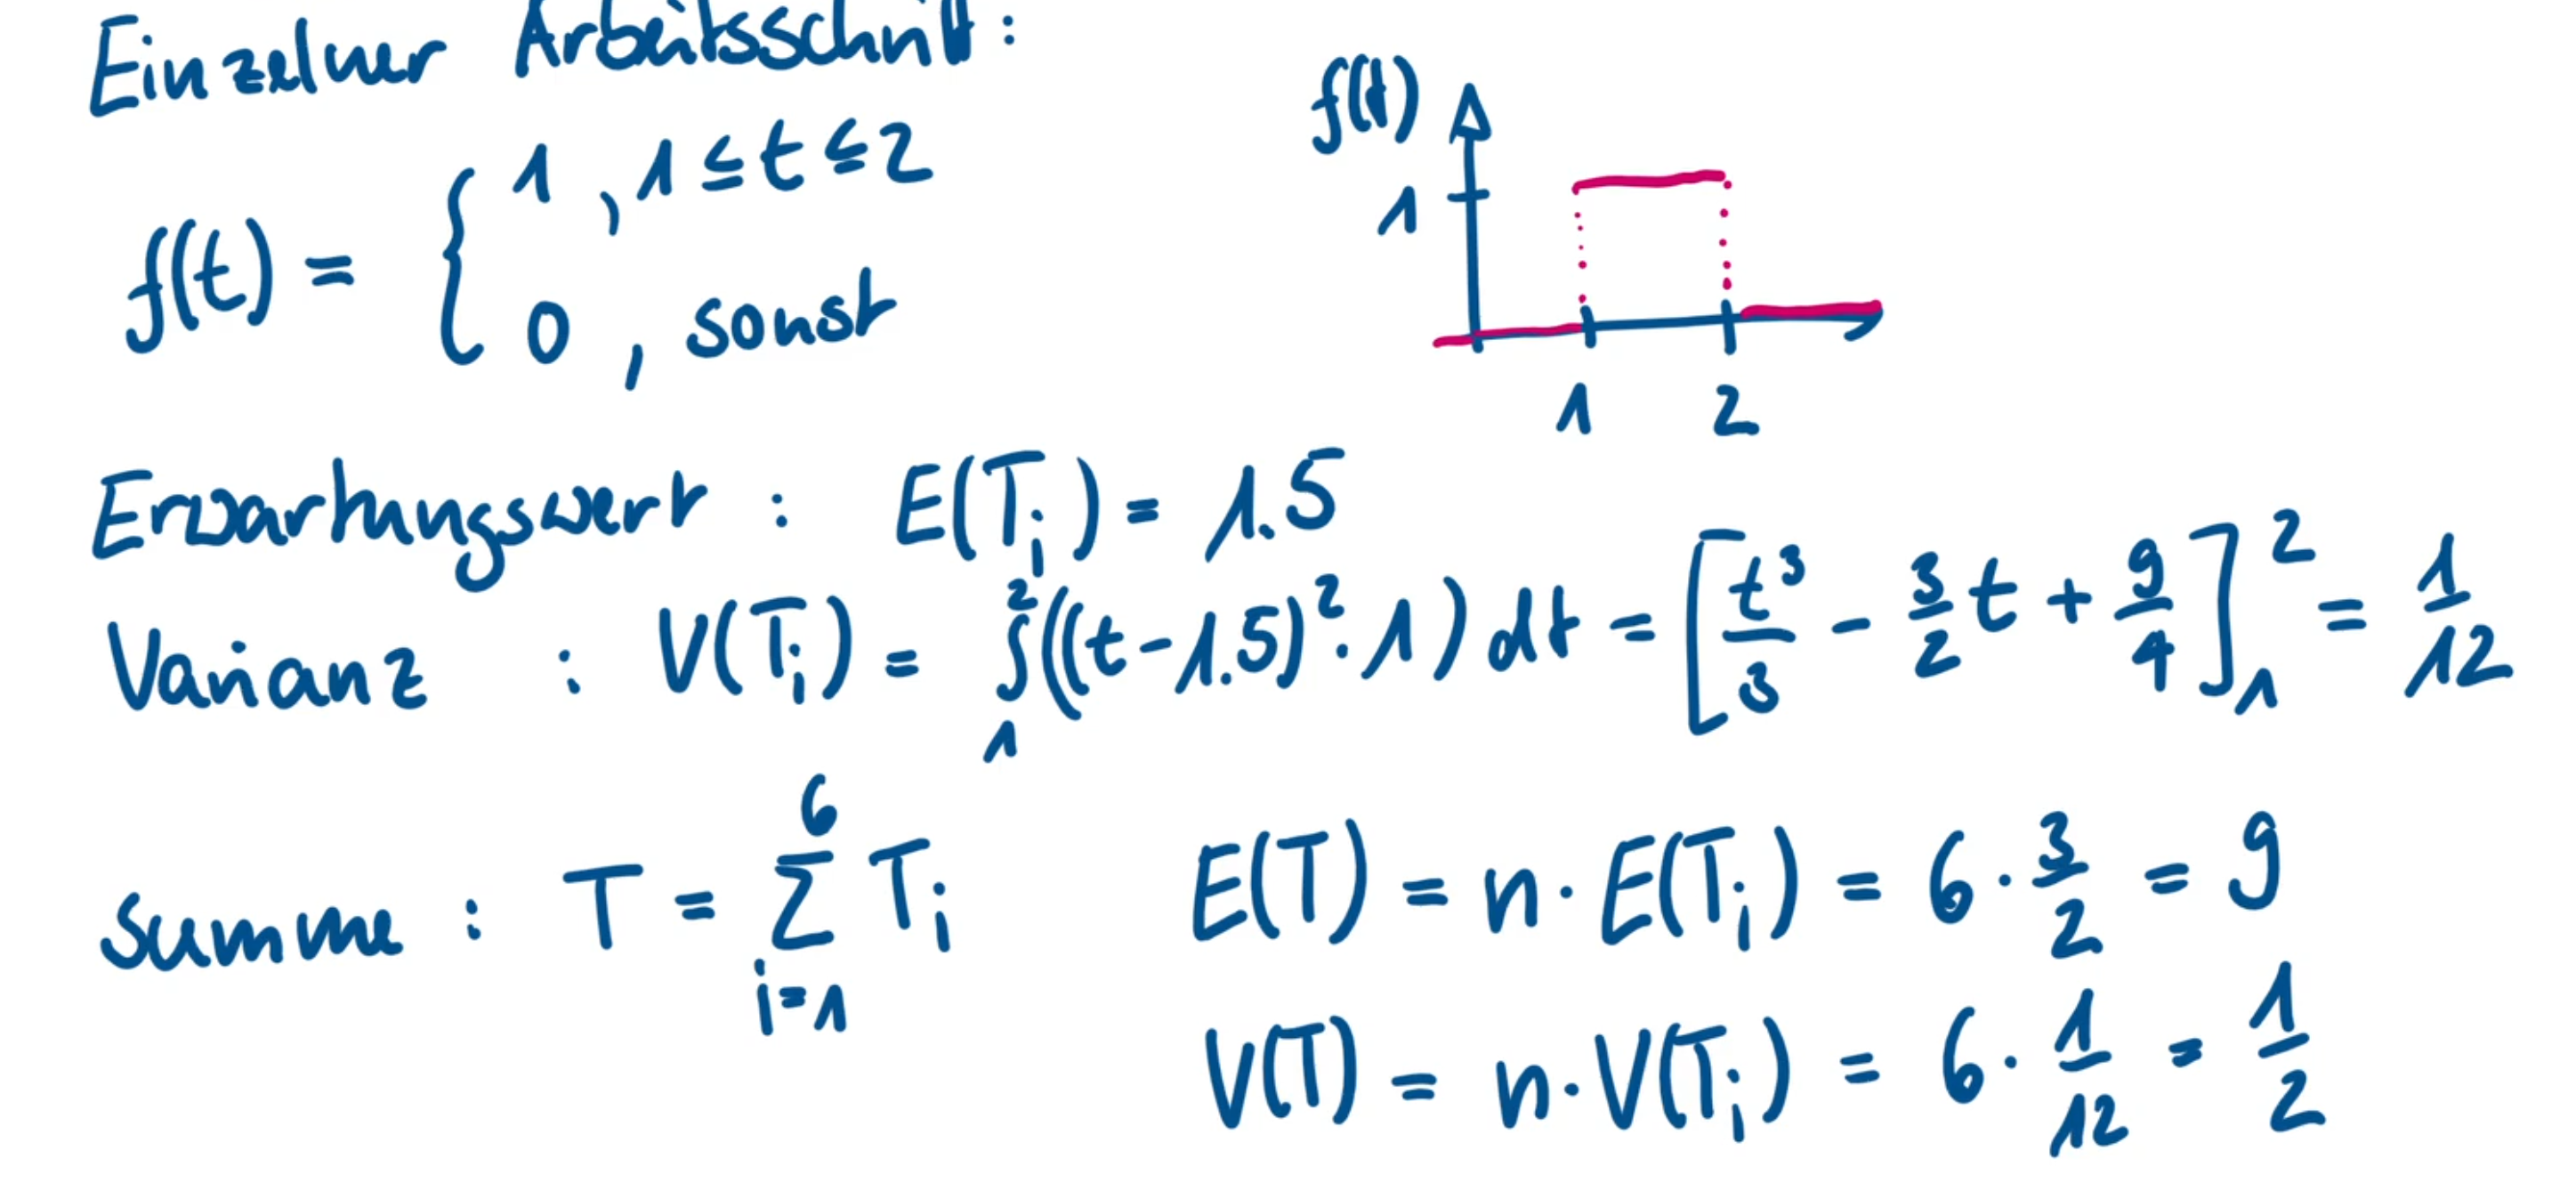 Einzelner Arbeitsschritt:
f(t) = { 1 , 1 ≤ t ≤ 2
0 , sonst
f(t)
1
1 2
Erwartungswert : E(T_i) = 1.5
Varianz : V(T_i) = ∫_1^2 ((t-1.5)^2 · 1) dt = [t^3/3 - 3/2 t + 9/4]_1^2 = 1/12
Summe : T = Σ_{i=1}^6 T_i E(T) = n · E(T_i) = 6 · 3/2 = 9
V(T) = n · V(T_i) = 6 · 1/12 = 1/2